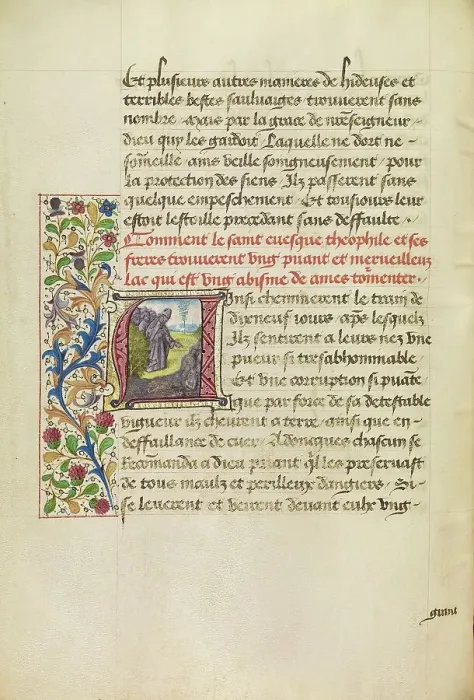 Et plusieurs autres manieres de hideuses et
terribles bestes sauluaiges trouuerent sans
nombre. Mais par la grace de nr̃eseigneur
dieu quy les gardoit Laquelle ne dort ne
sõmeille ains veille songneusement pour
la protection des siens Ilz passerent sans
quelque empeschement Et tousiours leur
estoit lestoille precedant sans deffaulte.
Comment le saint euesque theophile et ses
freres trouuerent vng puant et merueilleux
Lac qui est vng abisme de ames tõmenter.
Ainsi cheminerent le train de
dixneuf iours. Apr̃s lesquelz
Ilz sentirent a leurs nez vne
pueur si tresabhominable
Et vne corruption si puãte
que par force de sa detestable
vigueur ilz cheurent a terre. ainsi que en
deffaillance de cuer. Adoncques chascun se
recõmanda a dieu priant q̃l les preseruast
de tous maulx et perilleux dangiers. Si
se leuerent et veirent deuant eulx vng
grant